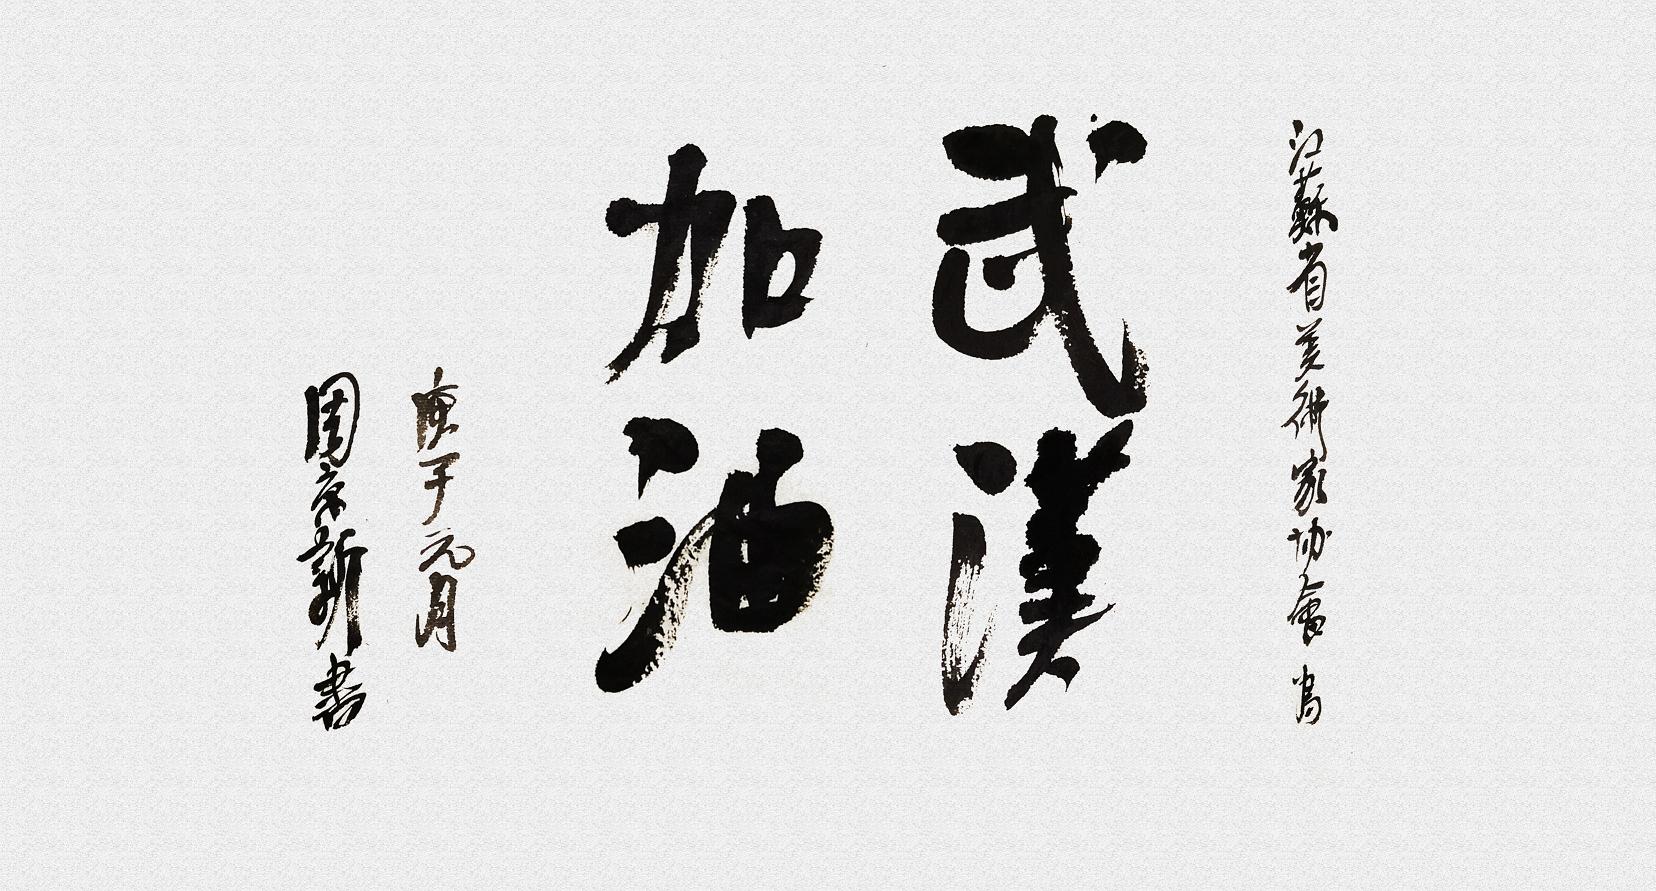 江蘇省美術家协會為
武漢
加油
庚子元月
周京新書